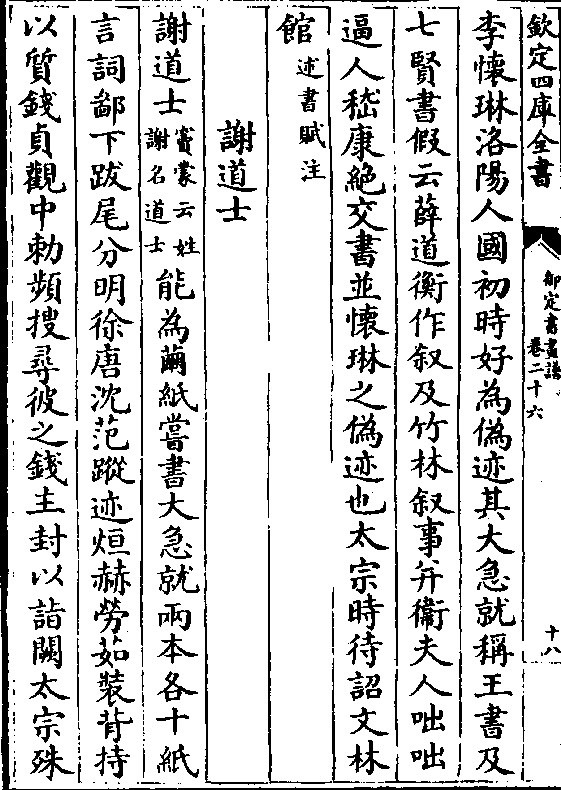 欽定四庫全書
御定書畫譜
卷二十六
十八
李懷琳洛陽人國初時好為偽迹其大急就稱王書及
七賢書假云薛道衡作叙及竹林叙事并衞夫人咄咄
逼人嵇康絶交書並懷琳之偽迹也太宗時待詔文林
館述書賦注
謝道士
謝道士竇蒙云姓謝名道士能為繭紙嘗書大急就兩本各十紙
言詞鄙下跋尾分明徐唐沈范蹤迹烜赫勞茹裝背持
以質錢貞觀中勅頻搜尋彼之錢主封以詣闕太宗殊